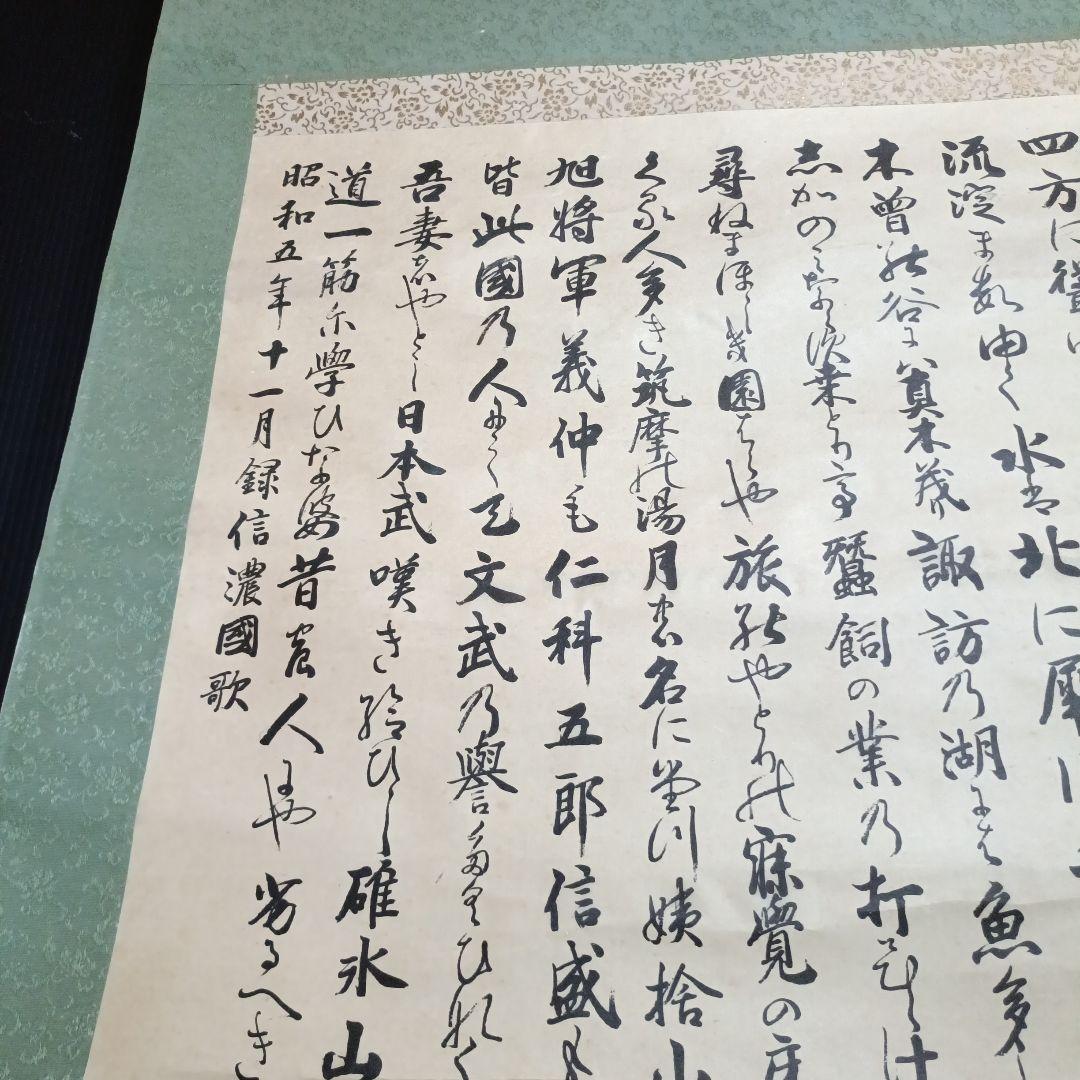 四方に聳
流淀ま数由く水者北に犀川
木曽能谷に八真木茂り諏訪乃湖尓は魚多し
志かのミならす桒とり亭蠶飼の業乃打ひらけ
尋ねまほし幾園はらや旅能やとり能寐覺の床
くる人多き筑摩能湯月の名に堂川姨捨山
旭将軍義仲毛仁科五郎信盛も
皆此國乃人尓して文武乃譽多くひなく
吾妻者やとし日本武嘆き給ひし碓氷山
道一筋尓學ひなは昔の人にや劣るへき
昭和五年十一月録信濃國歌